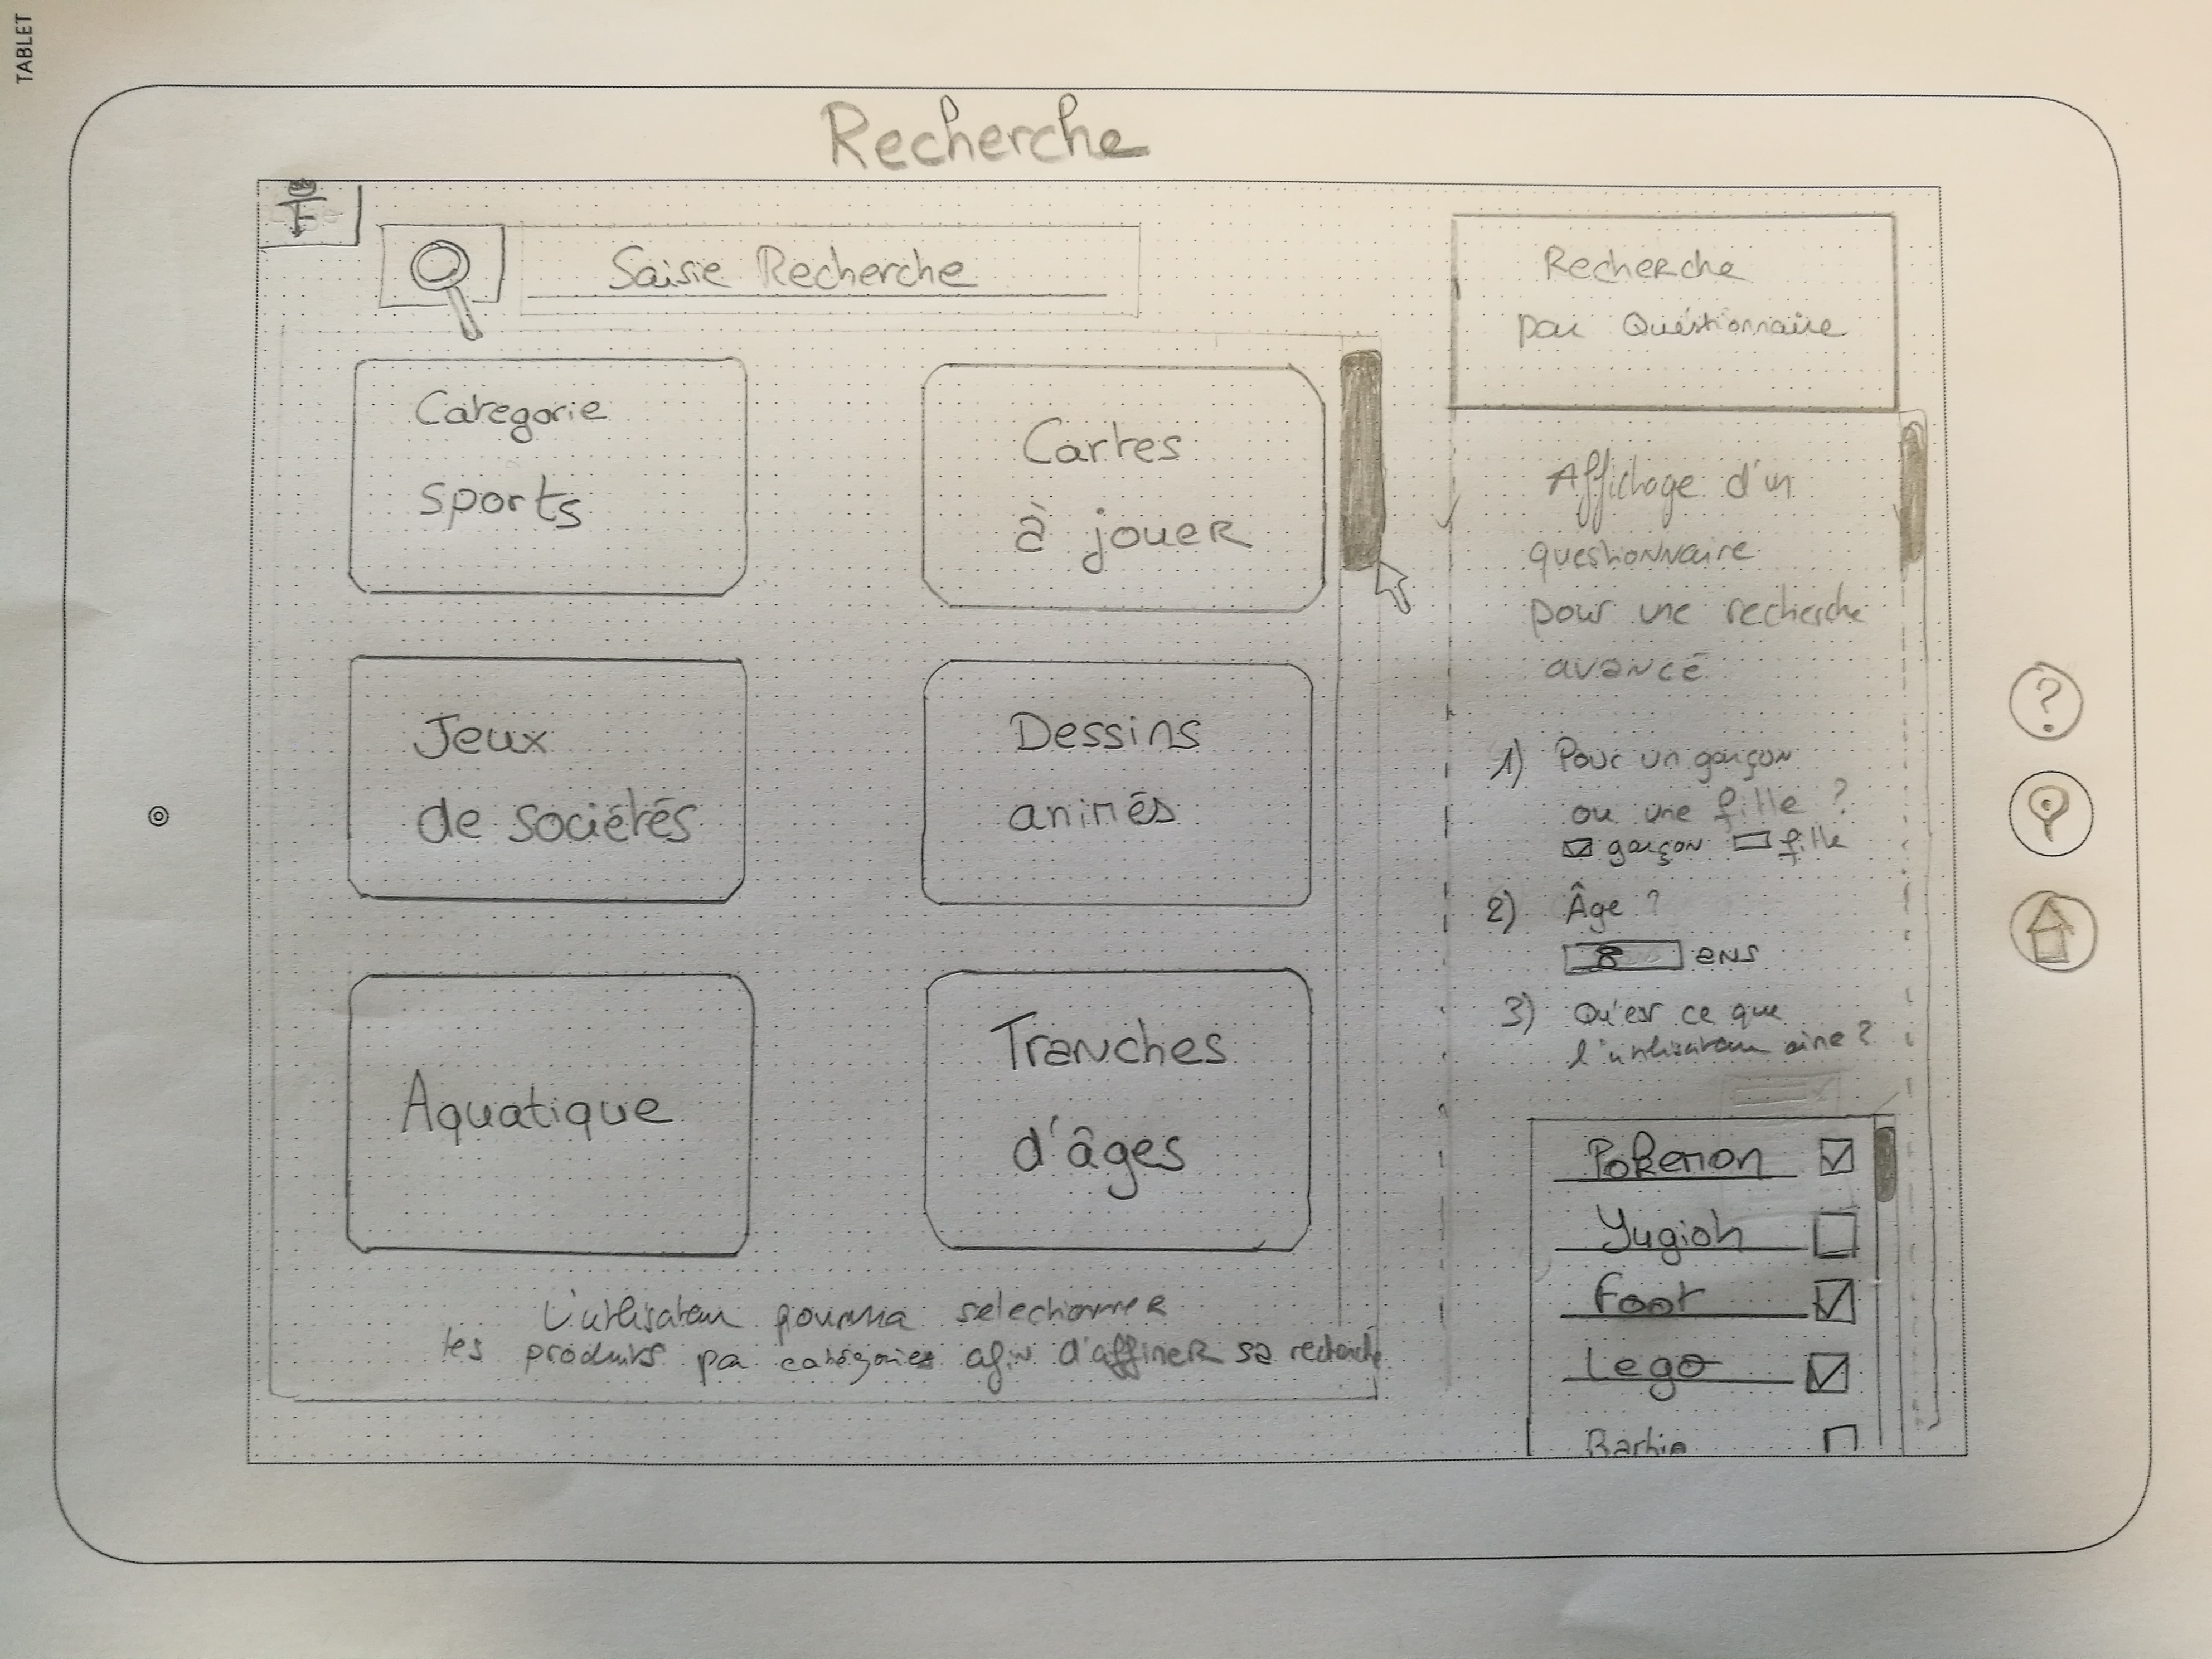 TABLET
Recherche
Saisie Recherche
Categorie
sports
Cartes
à jouer
Jeux
de sociétés
Dessins
animés
Aquatique
Tranches
d'âges
L'utilisateur pourra selectionner
les produits par catégories afin d'affiner sa recherche
Recherche
par Questionnaire
Affichage d'un
questionnaire
pour une recherche
avancé
1) Pour un garçon
ou une fille ?
garçon fille
2) Âge ?
8 ans
3) Qu'est ce que
l'utilisateur aime ?
Pokemon
Yugioh
Foot
Lego
Barbie
?